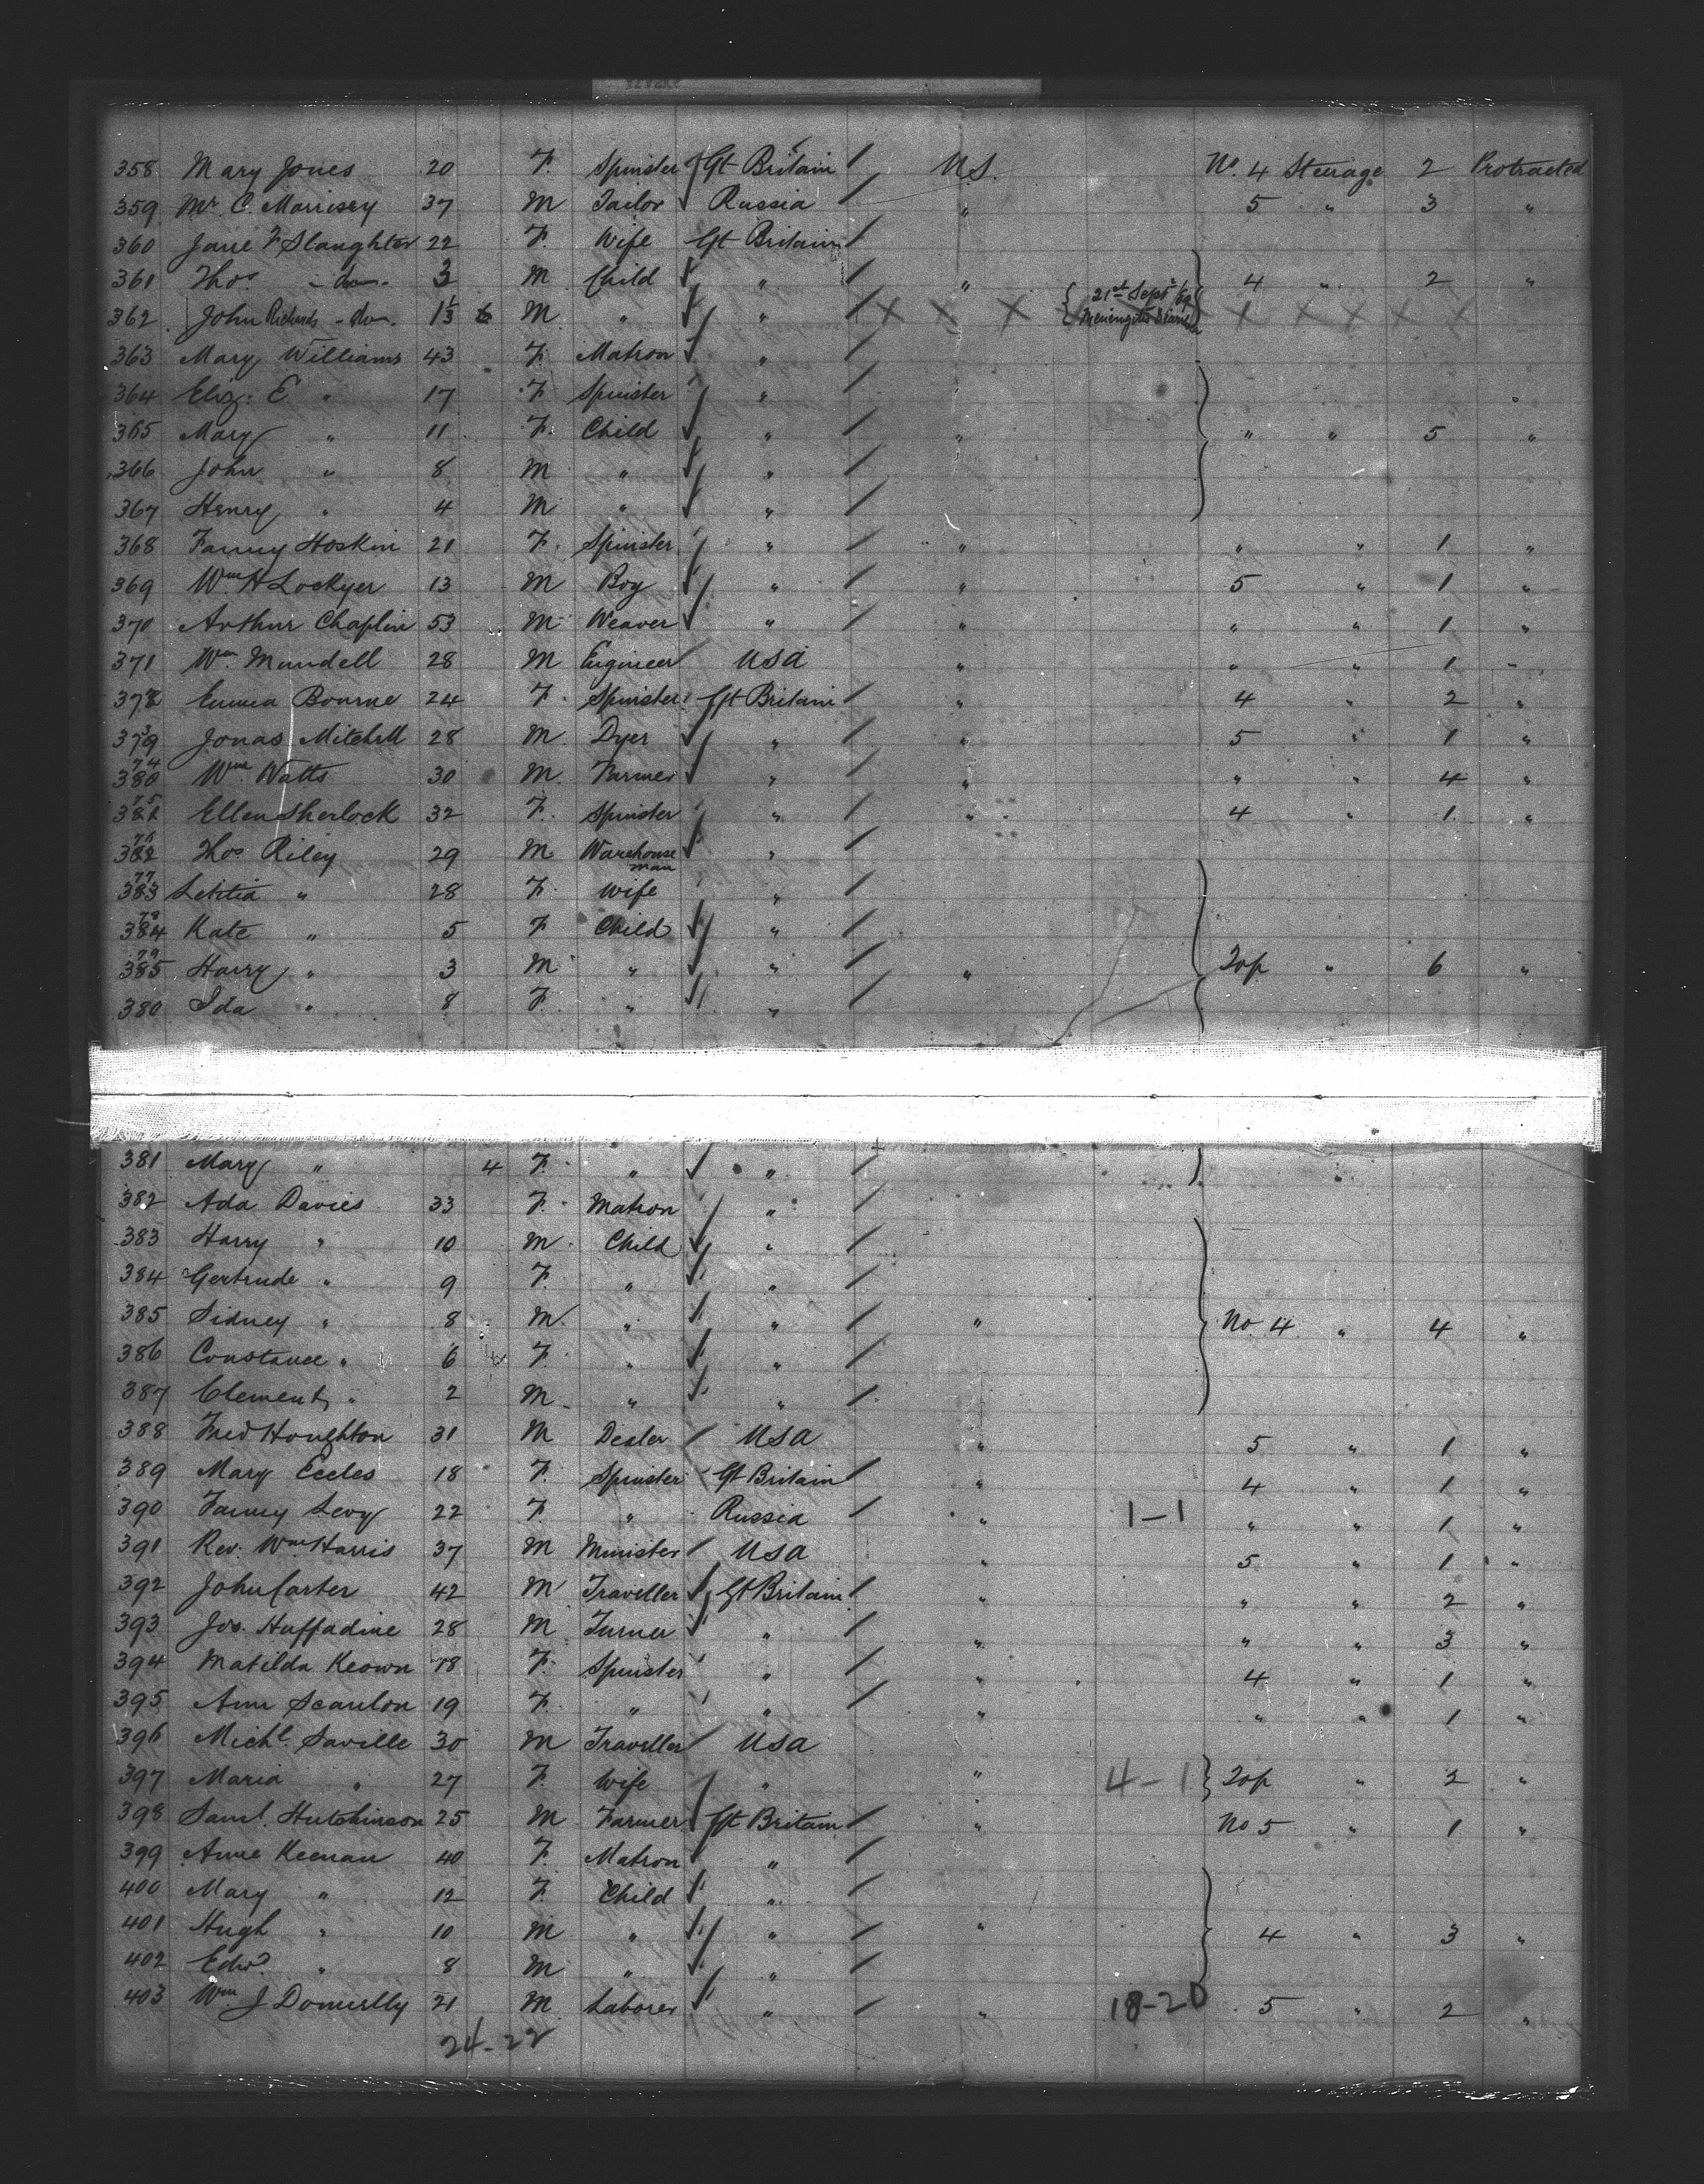 358 Mary Jones 20 F. Spinster Gt Britain / U.S. No. 4 Steerage 2 Protracted
359 Mr C. Morrisey 37 M Tailor Russia / " 5 " 3 "
360 Jane F Slaughter 22 F. Wife Gt Britain /
361 Thos. -do- 3 M Child " / " 4 " 2 "
362 John Richards -do- M " " / X X X 21st Sept /89 X X X X X X
363 Mary Williams 43 F. Matron " /
364 Eliz. E " 17 F Spinster " /
365 Mary " 11 F. Child " / " " " 5 "
366 John " 8 M " " /
367 Henry " 4 M " " /
368 Fanny Hoskin 21 F. Spinster " / " " " 1 "
369 Wm H Lockyer 13 M Boy " / " 5 " 1 "
370 Arthur Chaplin 53 M Weaver " / " " " 1 "
371 Wm. Mundell 28 M Engineer / USA " " " 1 "
372 Emma Bourne 24 F. Spinster Gt Britain / " 4 " 2 "
373 Jonas Mitchell 28 M. Dyer " / " 5 " 1 "
74 380 Wm Watts 30 M. Farmer " / " " " 4 "
75 Ellen Sherlock 32 F. Spinster " / " 4 " 1 "
76 382 Thos Riley 29 M Warehouse man " /
77 383 Letitia " 28 F. Wife " /
78 384 Kate " 5 F Child " /
79 385 Harry " 3 M " " / " Top " 6 "
380 Ida " 8 F. " " /
381 Mary " 4 F. " " /
382 Ada Davies 33 F. Matron " /
383 Harry " 10 M. Child " /
384 Gertrude " 9 F. " " /
385 Sidney " 8 M. " " / " No 4 " 4 "
386 Constance " 6 F. " " /
387 Clement " 2 M. " " /
388 Fred Houghton 31 M Dealer / USA " 5 " 1 "
389 Mary Eccles 18 F. Spinster Gt Britain / " 4 " 1 "
390 Fanny Levy 22 F. " Russia / " 1-1 " " 1 "
391 Rev. Wm Harris 37 M Minister / USA " 5 " 1 "
392 John Carter 42 M Traveller Gt Britain / " " " 2 "
393 Jos. Huffadine 28 M Turner " / " " " 3 "
394 Matilda Keown 18 F. Spinster " / " 4 " 1 "
395 Ann Scanlon 19 F. " " / " " " 1 "
396 Michl. Saville 30 M Traveller / USA
397 Maria " 27 F. Wife / " " 4-1 Top " 2 "
398 Saml. Hutchinson 25 M Farmer Gt Britain / " No 5 " 1 "
399 Anne Keenan 40 F. Matron " /
400 Mary " 12 F. Child " /
401 Hugh " 10 M " " / " 4 " 3 "
402 Edwd " 8 M " " /
403 Wm J Donnelly 21 M. Laborer " / " 18-20 5 " 2 "
24-22